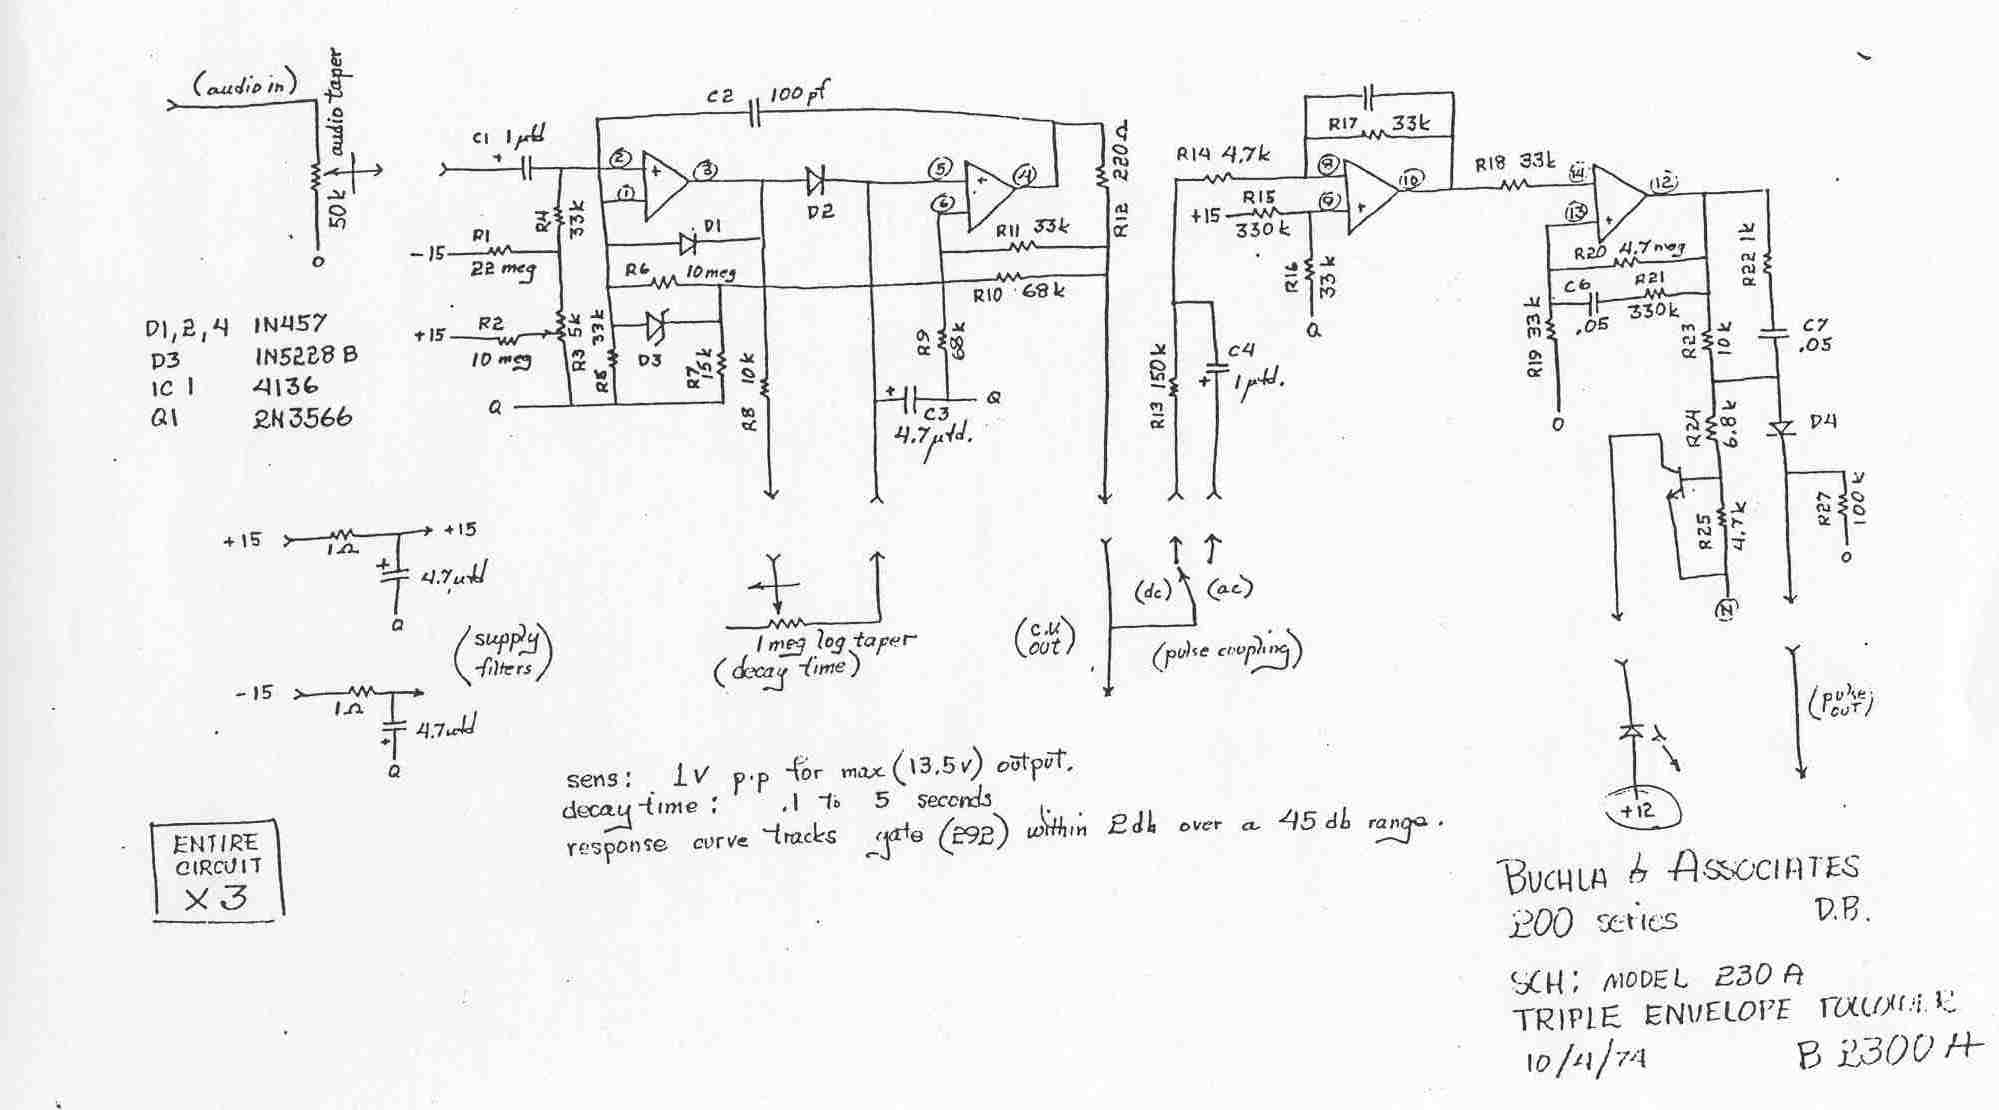 (audio in)
50k audio taper
0
C1 1 µfd
+
C2 100 pf
② + ③
①
R4 33k
-15 R1
22 meg
+15 R2
10 meg
R3 5k
R5 33k
D1
R6 10 meg
D3
R7 15k
Q
D2
R8 10k
⑤ + ④
⑥
R11 33k
R10 68k
R9 68k
+ C3 Q
4.7 µfd.
R12 220Ω
R14 4.7k
R17 33k
⑧ ⑩
+15 R15
330k
⑨ +
R16 33k
Q
R13 150k
C4
+ 1 µfd.
R18 33k
⑭ ⑫
⑬ +
R20 4.7 meg
C6 R21
.05 330k
R19 33k
0
R22 1k
R23 10k
C7
.05
R24 6.8k
D4
R25 4.7k
R27 100k
0
D1,2,4 1N457
D3 1N5228 B
IC 1 4136
Q1 2N3566
+15 +15
1Ω
+ 4.7 µfd
Q
(supply
filters)
-15
1Ω
4.7 µfd
+
Q
1 meg log taper
(decay time)
(c.v.
out)
(dc) (ac)
(pulse coupling)
λ
+12
(pulse
out)
sens: 1V p.p for max (13.5v) output.
decay time: .1 to 5 seconds
response curve tracks gate (292) within 2db over a 45 db range.
ENTIRE
CIRCUIT
X 3
BUCHLA & ASSOCIATES
200 series D.B.
SCH: MODEL 230 A
TRIPLE ENVELOPE FOLLOWER
10/4/74 B 2300 A